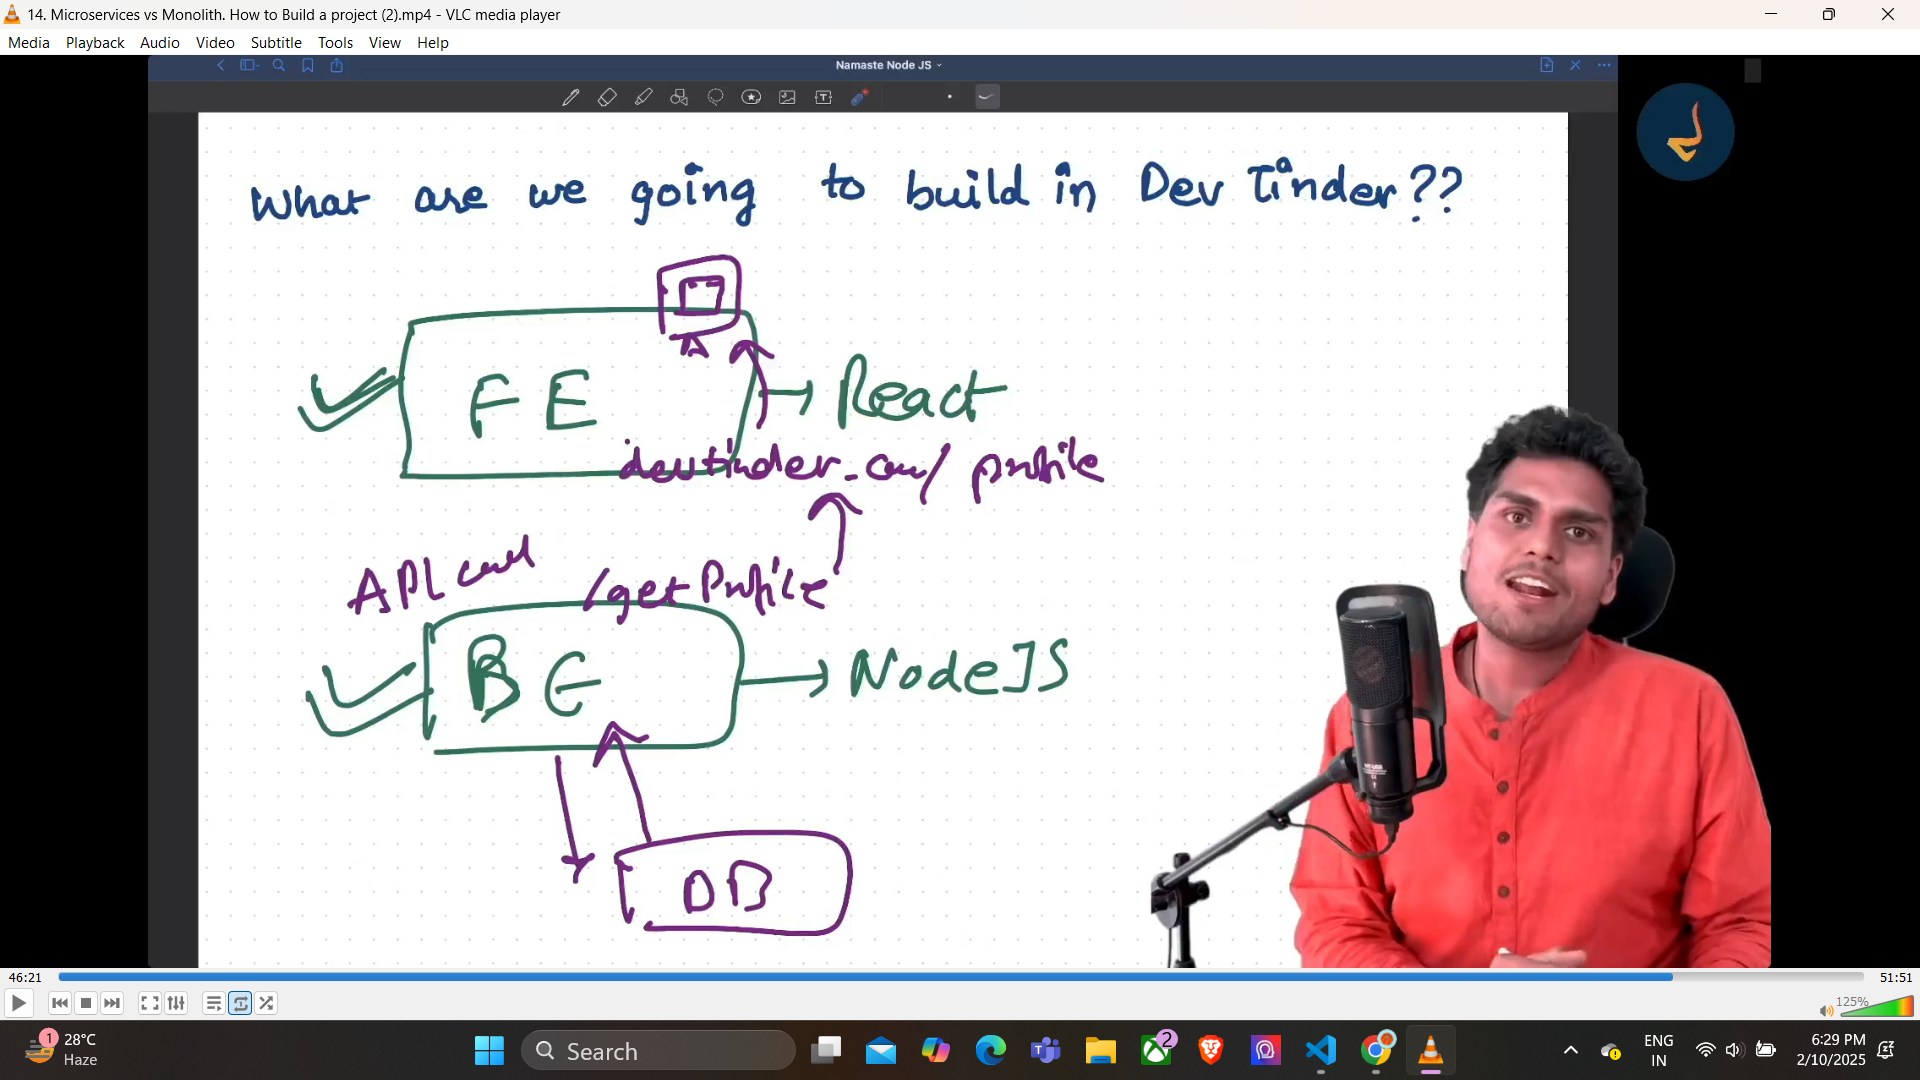 14. Microservices vs Monolith. How to Build a project (2).mp4 - VLC media player
Media Playback Audio Video Subtitle Tools View Help
Namaste Node JS
What are we going to build in Dev Tinder??
FE
React
devtinder.com/profile
API call /getProfile
BE
NodeJS
DB
46:21
51:51
125%
1
28°C
Haze
Search
2
ENG
IN
6:29 PM
2/10/2025